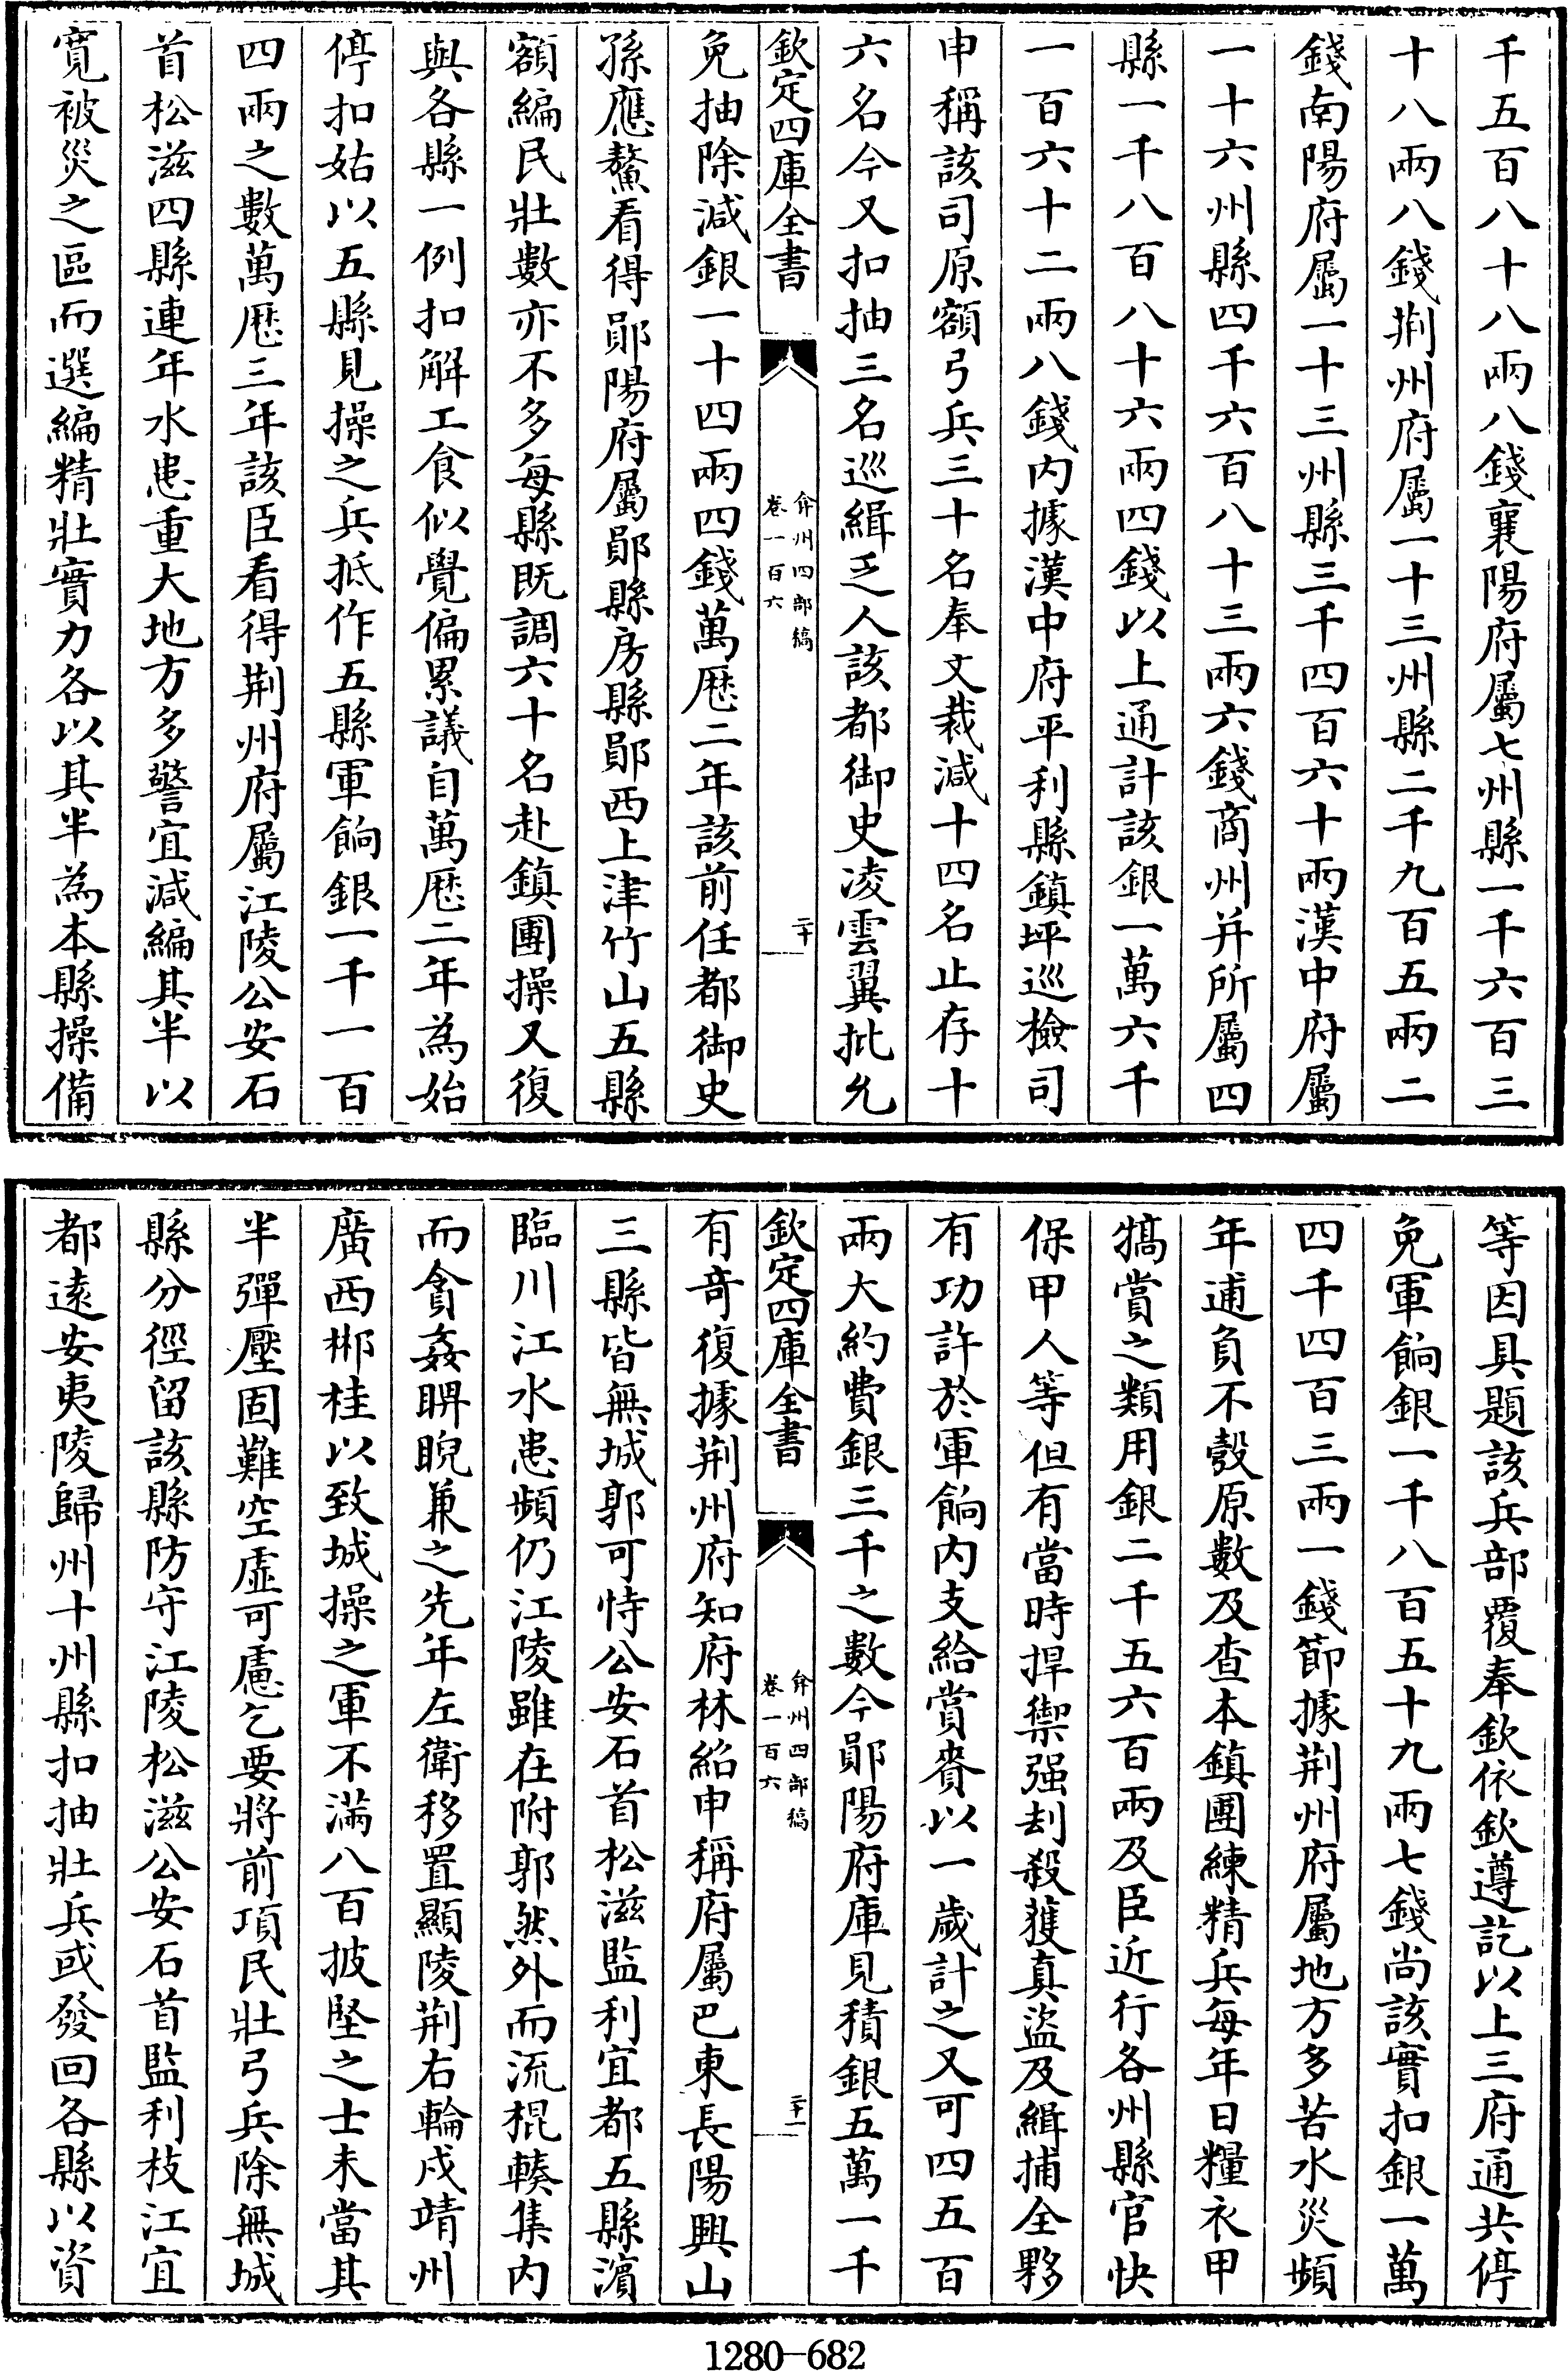 千五百八十八兩八錢襄陽府屬七州縣一千六百三
十八兩八錢荆州府屬一十三州縣二千九百五兩二
錢南陽府屬一十三州縣三千四百六十兩漢中府屬
一十六州縣四千六百八十三兩六錢商州并所屬四
縣一千八百八十六兩四錢以上通計該銀一萬六千
一百六十二兩八錢内據漢中府平利縣鎮坪巡檢司
申稱該司原額弓兵三十名奉文裁減十四名止存十
六名今又扣抽三名巡緝乏人該都御史凌雲翼批允
欽定四庫全書
弇州四部稿
卷一百六
二十
免抽除減銀一十四兩四錢萬厯二年該前任都御史
孫應鰲看得鄖陽府屬鄖縣房縣鄖西上津竹山五縣
額編民壯數亦不多每縣既調六十名赴鎮團操又復
與各縣一例扣解工食似覺偏累議自萬厯二年為始
停扣姑以五縣見操之兵抵作五縣軍餉銀一千一百
四兩之數萬厯三年該臣看得荆州府屬江陵公安石
首松滋四縣連年水患重大地方多警宜減編其半以
寛被災之區而選編精壯實力各以其半為本縣操備
等因具題該兵部覆奉欽依欽遵訖以上三府通共停
免軍餉銀一千八百五十九兩七錢尚該實扣銀一萬
四千四百三兩一錢節據荆州府屬地方多苦水災頻
年逋負不彀原數及查本鎮團練精兵每年日糧衣甲
犒賞之類用銀二千五六百兩及臣近行各州縣官快
保甲人等但有當時捍禦强刦殺獲真盜及緝捕全夥
有功許於軍餉内支給賞賚以一歲計之又可四五百
兩大約費銀三千之數今鄖陽府庫見積銀五萬一千
欽定四庫全書
弇州四部稿
卷一百六
二十一
有竒復據荆州府知府林紹申稱府屬巴東長陽興山
三縣皆無城郭可恃公安石首松滋監利宜都五縣濵
臨川江水患頻仍江陵雖在附郭然外而流棍輳集内
而貪姦睥睨兼之先年左衛移置顯陵荆右輪戍靖州
廣西郴桂以致城操之軍不滿八百披堅之士未當其
半彈壓固難空虛可慮乞要將前項民壯弓兵除無城
縣分徑留該縣防守江陵松滋公安石首監利枝江宜
都逺安夷陵歸州十州縣扣抽壯兵或發回各縣以資
1280-682